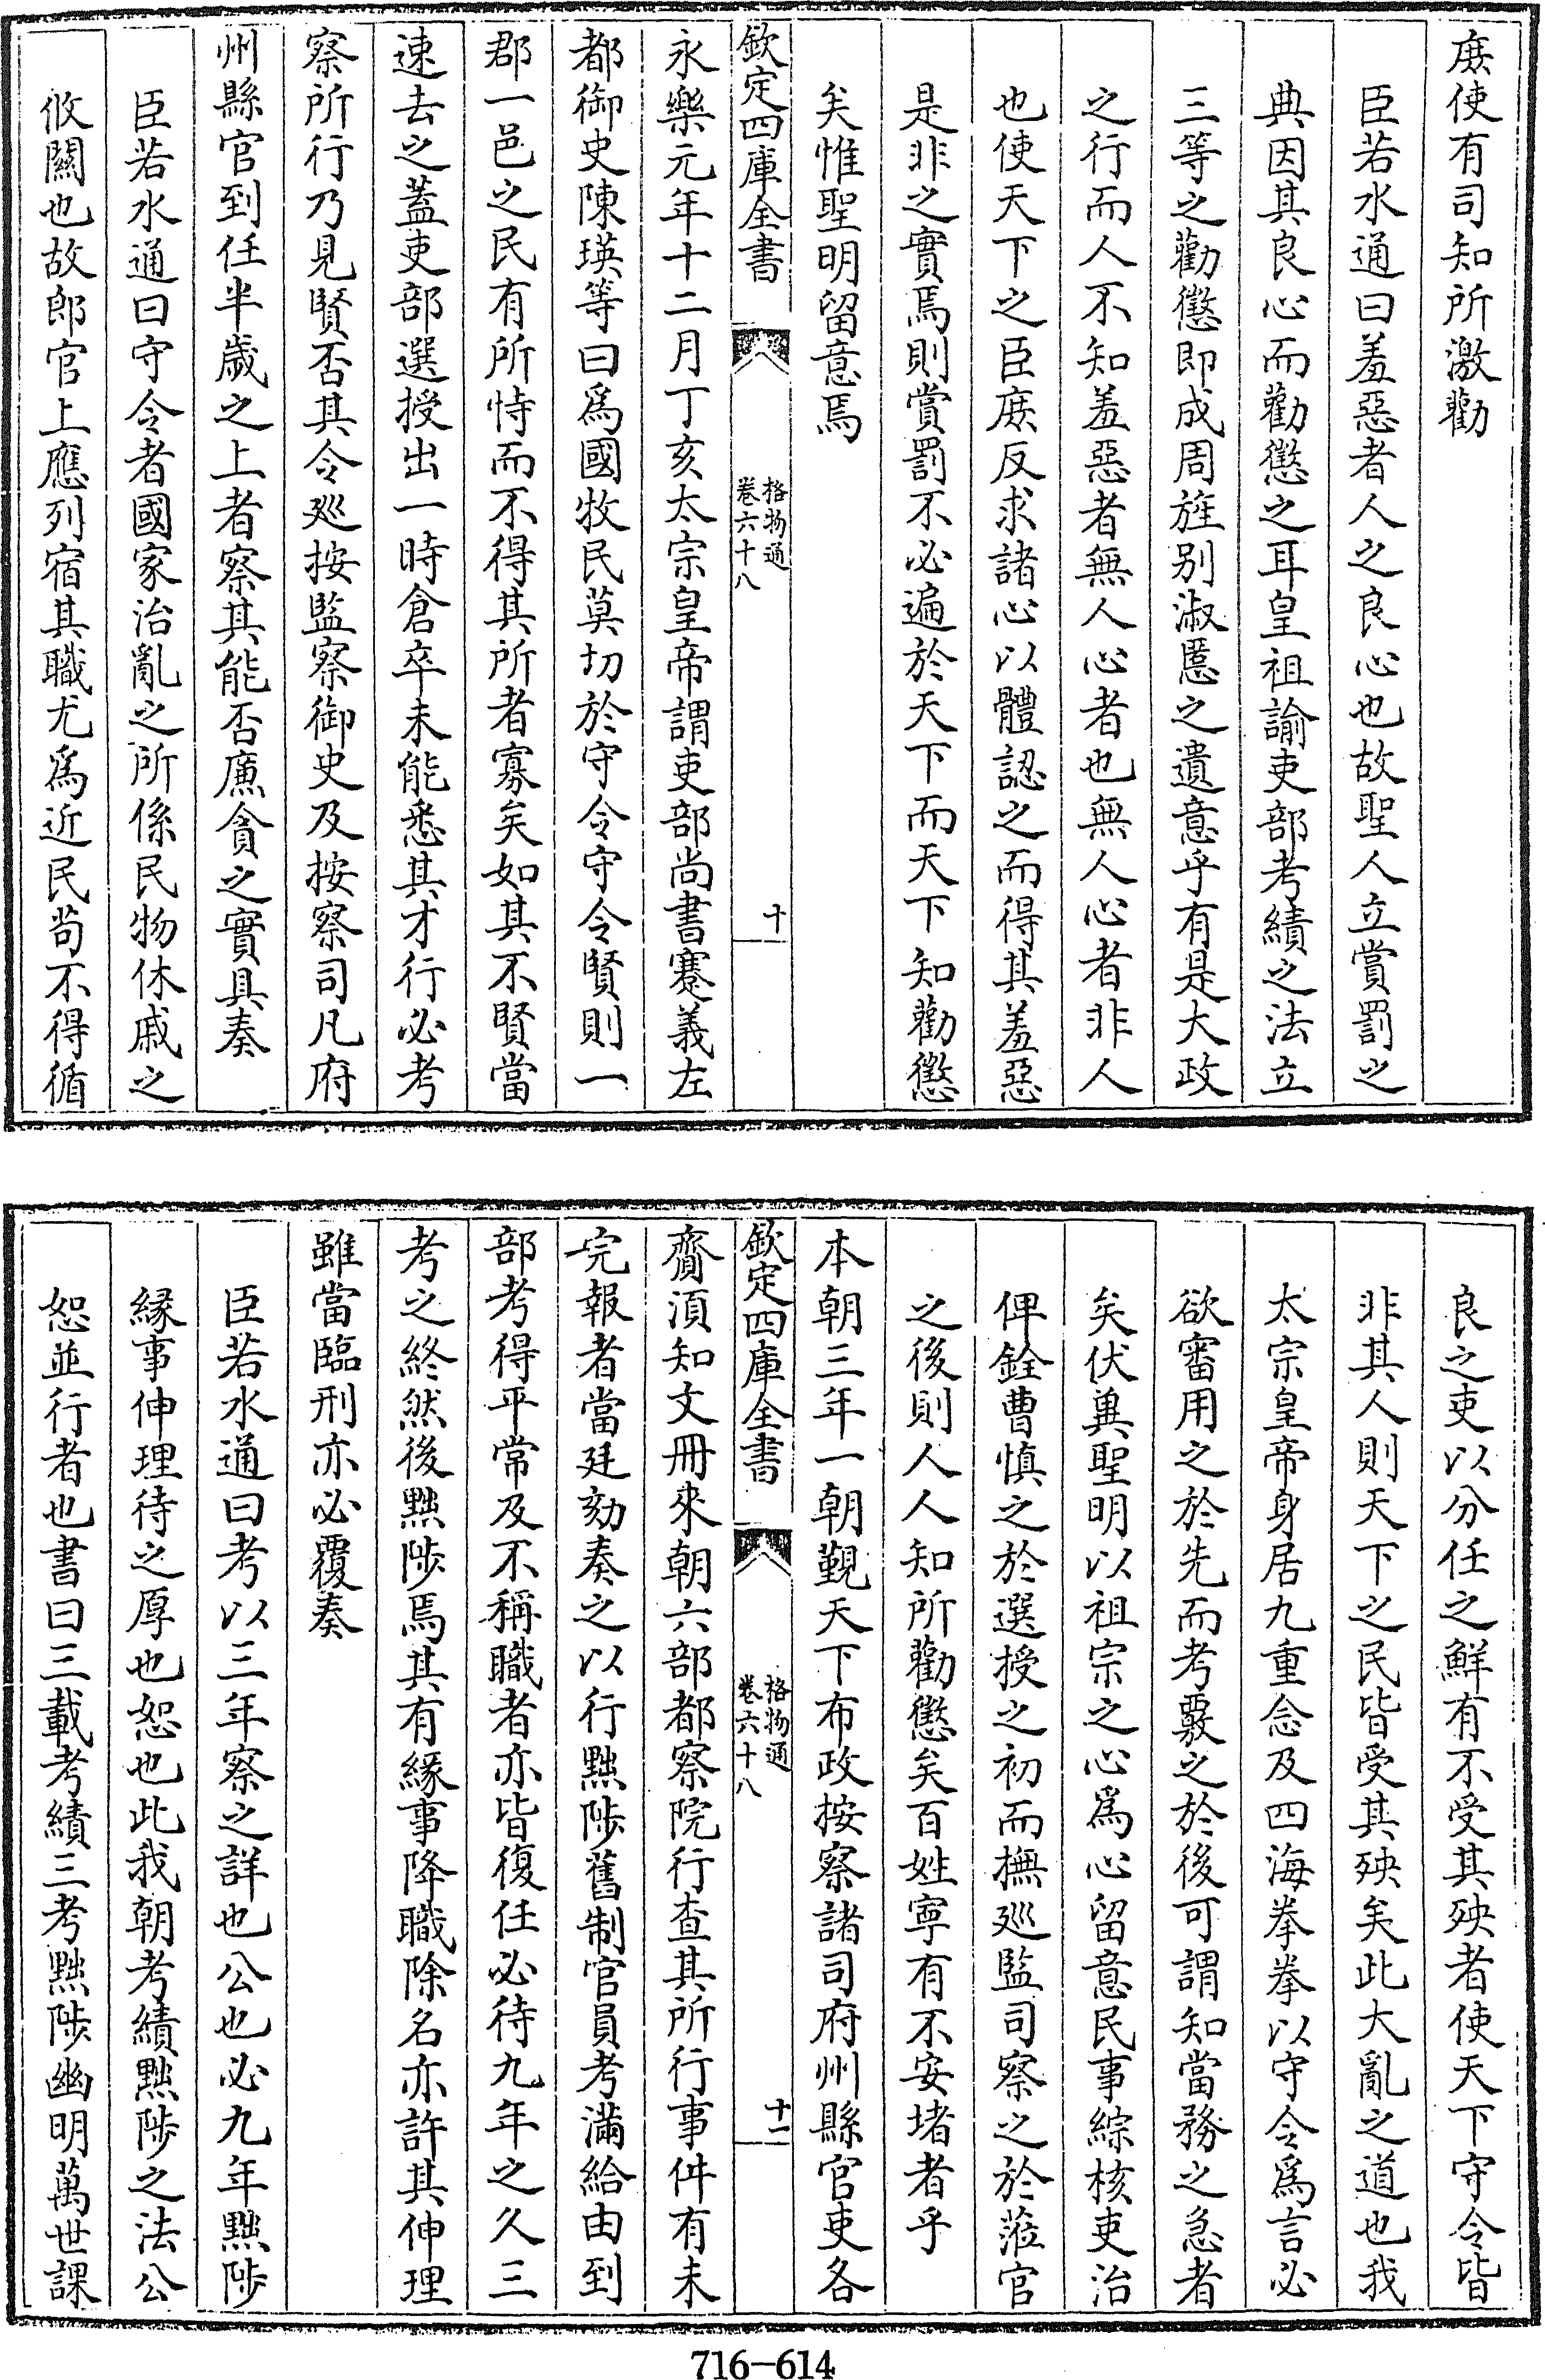 庶使有司知所激勸
臣若水通曰羞惡者人之良心也故聖人立賞罰之
典因其良心而勸懲之耳皇祖諭吏部考績之法立
三等之勸懲即成周旌别淑慝之遺意乎有是大政
之行而人不知羞惡者無人心者也無人心者非人
也使天下之臣庶反求諸心以體認之而得其羞惡
是非之實焉則賞罰不必遍於天下而天下知勸懲
矣惟聖明留意焉
欽定四庫全書
格物通
卷六十八
十
永樂元年十二月丁亥太宗皇帝謂吏部尚書蹇義左
都御史陳瑛等曰爲國牧民莫切於守令守令賢則一
郡一邑之民有所恃而不得其所者寡矣如其不賢當
速去之蓋吏部選授出一時倉卒未能悉其才行必考
察所行乃見賢否其令廵按監察御史及按察司凡府
州縣官到任半歲之上者察其能否廉貪之實具奏
臣若水通曰守令者國家治亂之所係民物休戚之
攸關也故郎官上應列宿其職尤爲近民茍不得循
良之吏以分任之鮮有不受其殃者使天下守令皆
非其人則天下之民皆受其殃矣此大亂之道也我
太宗皇帝身居九重念及四海拳拳以守令爲言必
欲審用之於先而考覈之於後可謂知當務之急者
矣伏兾聖明以祖宗之心爲心留意民事綜核吏治
俾銓曹慎之於選授之初而撫廵監司察之於蒞官
之後則人人知所勸懲矣百姓寕有不安堵者乎
本朝三年一朝覲天下布政按察諸司府州縣官吏各
欽定四庫全書
格物通
卷六十八
十一
齎湏知文冊來朝六部都察院行查其所行事件有未
完報者當廷劾奏之以行黜陟舊制官員考滿給由到
部考得平常及不稱職者亦皆復任必待九年之久三
考之終然後黜陟焉其有緣事降職除名亦許其伸理
雖當臨刑亦必覆奏
臣若水通曰考以三年察之詳也公也必九年黜陟
緣事伸理待之厚也恕也此我朝考績黜陟之法公
恕並行者也書曰三載考績三考黜陟幽明萬世課
716-614